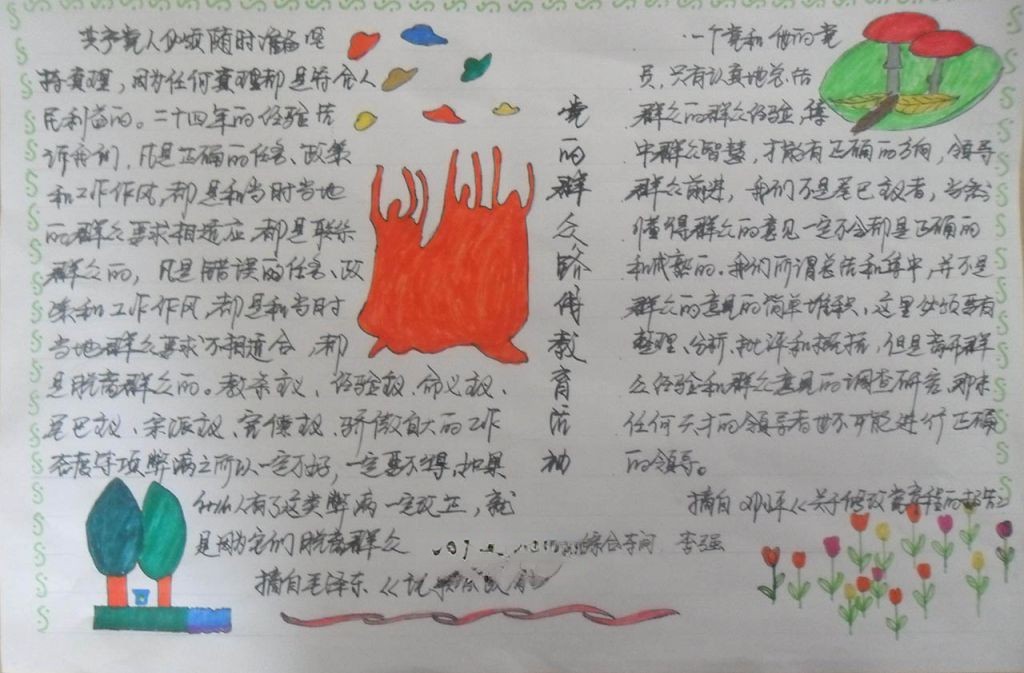 共产党人必须随时准备坚
持真理，因为任何真理都是符合人
民利益的。二十四年的经验告
诉我们，凡是正确的任务、政策
和工作作风，都是和当时当地
的群众要求相适应，都是联系
群众的，凡是错误的任务、政
策和工作作风，都是和当时
当地群众要求不相适合，都
是脱离群众的。教条主义、经验主义、命令主义、
尾巴主义、宗派主义、官僚主义、骄傲自大的工作
态度等项弊病之所以一定不好，一定要不得，如果
什么人有了这类弊病一定改正，就
是因为它们脱离群众
摘自毛泽东《论联合政府
党的群众路线教育活动
一个党和他的党
员，只有认真地总结
群众的群众经验，集
中群众智慧，才能有正确的方向，领导
群众前进，我们不是尾巴主义者，当然
懂得群众的意见一定不会都是正确的
和成熟的。我们所谓总结和集中，并不是
群众的意见的简单堆积，这里必须要有
整理、分析、批评和概括，但是离开群
众经验和群众意见的调查研究，那末
任何天才的领导者也不可能进行正确
的领导。
摘自邓小平《关于修改党章程的报告》
综合车间 李强